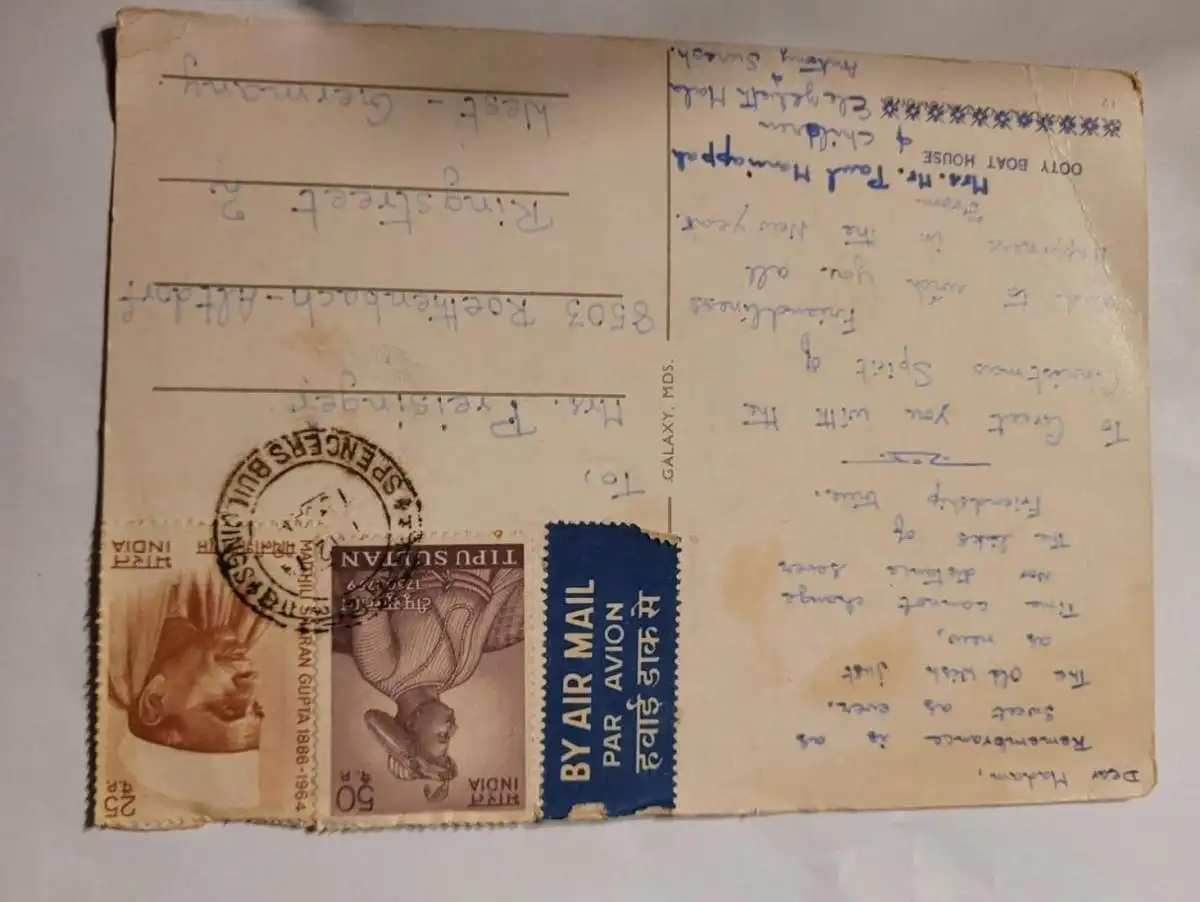 Dear Madam,
Remembrance is as
Sweet as ever,
The old wish Just
as new,
Time cannot change
nor distance sever
The links of
Friendship true.
To Greet you with the
Christmas Spirit of
Friendliness
and to wish you all
Happiness in the New year.
From
Mrs. Mr. Paul
& children
Mala
&
Antony Suresh.
OOTY BOAT HOUSE
17
GALAXY, MDS.
BY AIR MAIL
PAR AVION
हवाई डाक से
भारत
INDIA
50
P.
टीपू सुल्तान
TIPU SULTAN
25
P.
SHARAN GUPTA 1886-1964
भारत
INDIA
SPENCERS BUILDINGS
To,
Mrs. Preisinger
8503 Roethenbach-Altdorf
Ringstreet 2.
West - Germany.